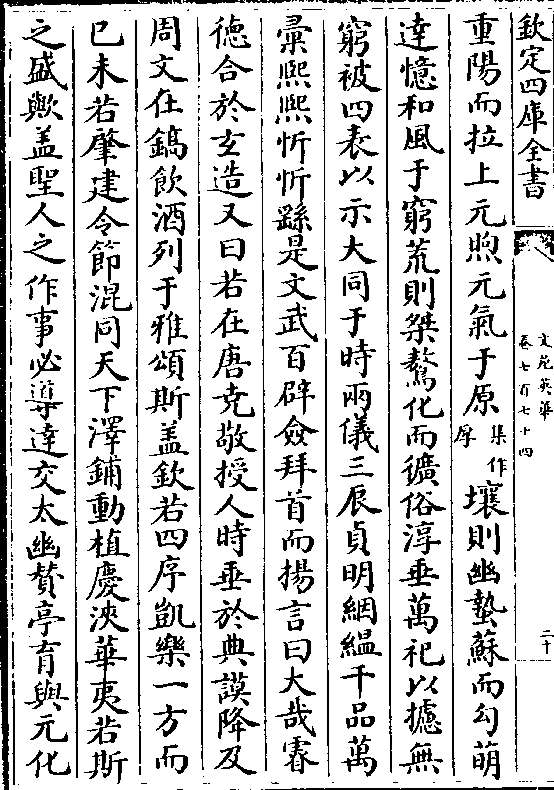 欽定四庫全書
文苑英華
卷七百七十四
二十
重陽而拉上元煦元氣于原集作厚壤則幽蟄蘇而勾萌
達憶和風于窮荒則桀驁化而獷俗淳垂萬祀以攄無
窮被四表以示大同于時兩儀三辰貞明絪緼千品萬
彚熈熈忻忻繇是文武百辟僉拜首而揚言曰大哉睿
徳合於玄造又曰若在唐堯敬授人時垂於典謨降及
周文在鎬飲酒列于雅頌斯盖欽若四序凱樂一方而
已未若肇建令節混同天下澤鋪動植慶浹華夷若斯
之盛歟盖聖人之作事必導達交太幽賛亭育與元化